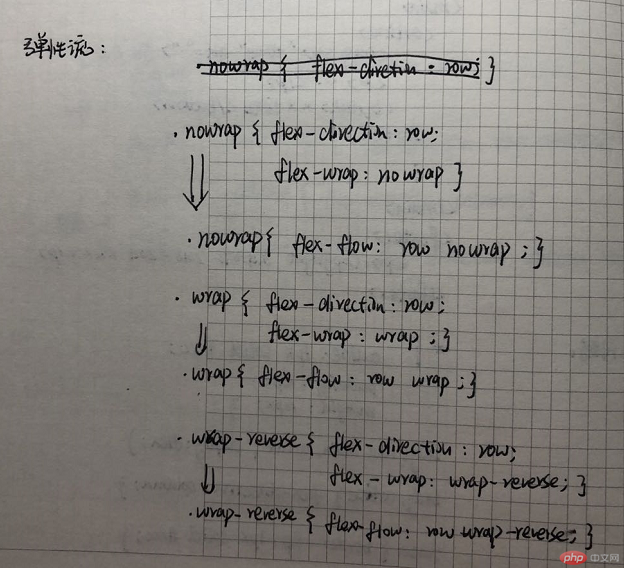 弹性流:
.nowrap { flex-directin : row; }
.nowrap { flex-directin : row;
flex-wrap : nowrap }
.nowrap{ flex-flow: row nowrap ; }
.wrap { flex-direction : row;
flex-wrap : wrap ; }
.wrap { flex-flow : row wrap ; }
.wrap-reverse { flex-direction : row;
flex-wrap: wrap-reverse; }
.wrap-reverse { flex-flow: row wrap-reverse; }
php 中文网